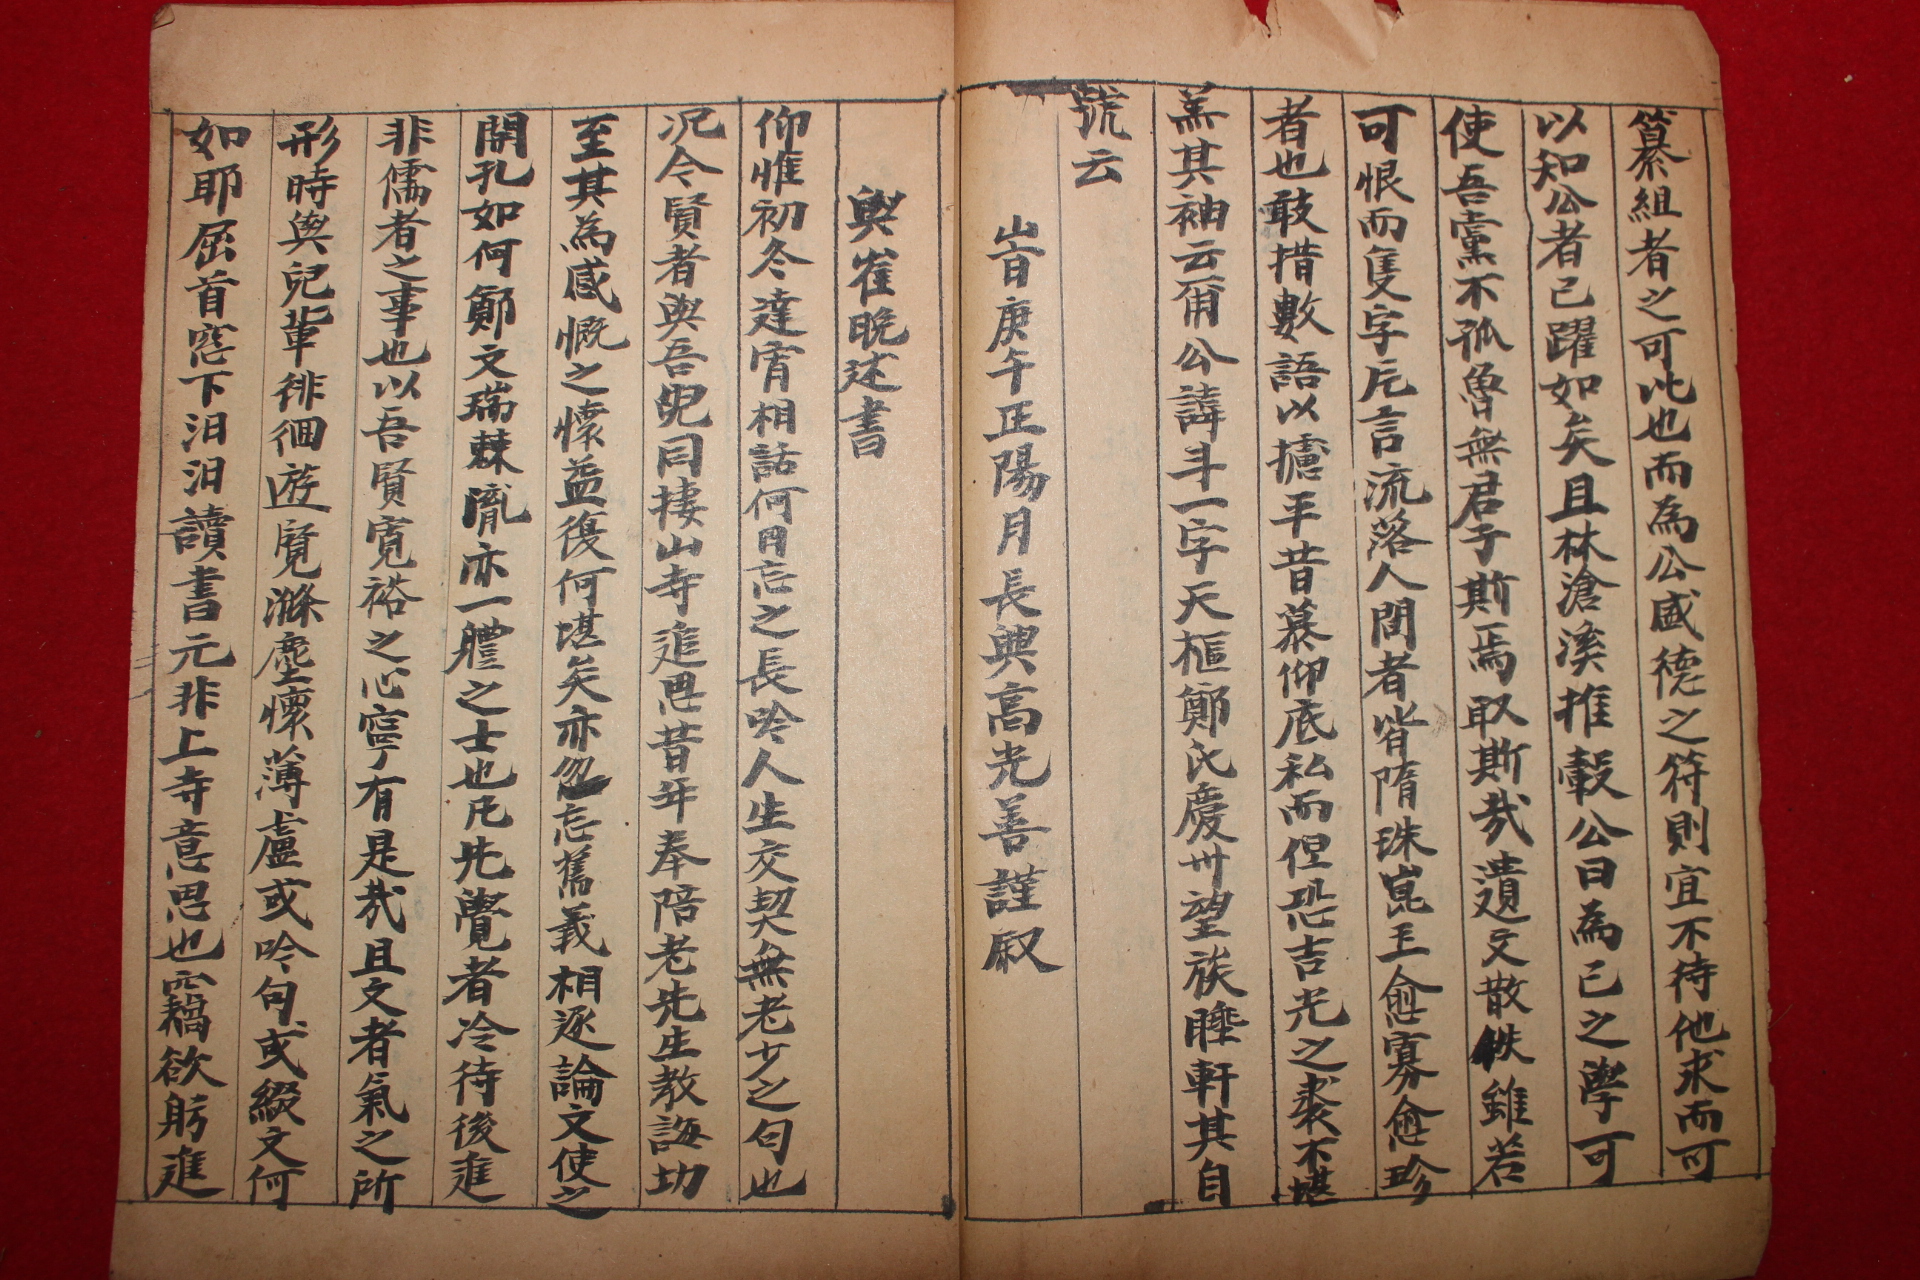 纂組者之可比也而為公盛德之符則宜不待他求而可
以知公者已躍如矣且林滄溪推轂公曰為己之學可
使吾黨不孤魯無君子斯焉取斯哉遺文散佚雖若
可恨而隻字片言流落人間者皆隋珠崑玉愈寡愈珍
者也敢措數語以攄平昔慕仰底私而但恐吉光之裘不堪
羔其袖云爾公諱斗一字天樞鄭氏慶州望族睡軒其自
號云
旹庚午正陽月長興高光善謹叙
與崔晩述書
仰惟初冬達宵相話何日忘之長吟人生交契無老少之句也
况今賢者與吾兒同棲山寺追思昔年奉陪老先生教誨功
至其為感慨之懷益復何堪矣亦忽忘舊義相逐論文使之
開孔如何鄭文瑞棘胤亦一體之士也凡先覺者冷待後進
非儒者之事也以吾賢寬裕之心寧有是哉且文者氣之所
形時與兒輩徘徊遊覽滌塵懷薄盧或吟句或綴文何
如耶屈首窓下汨汨讀書元非上寺意思也竊欲躬進